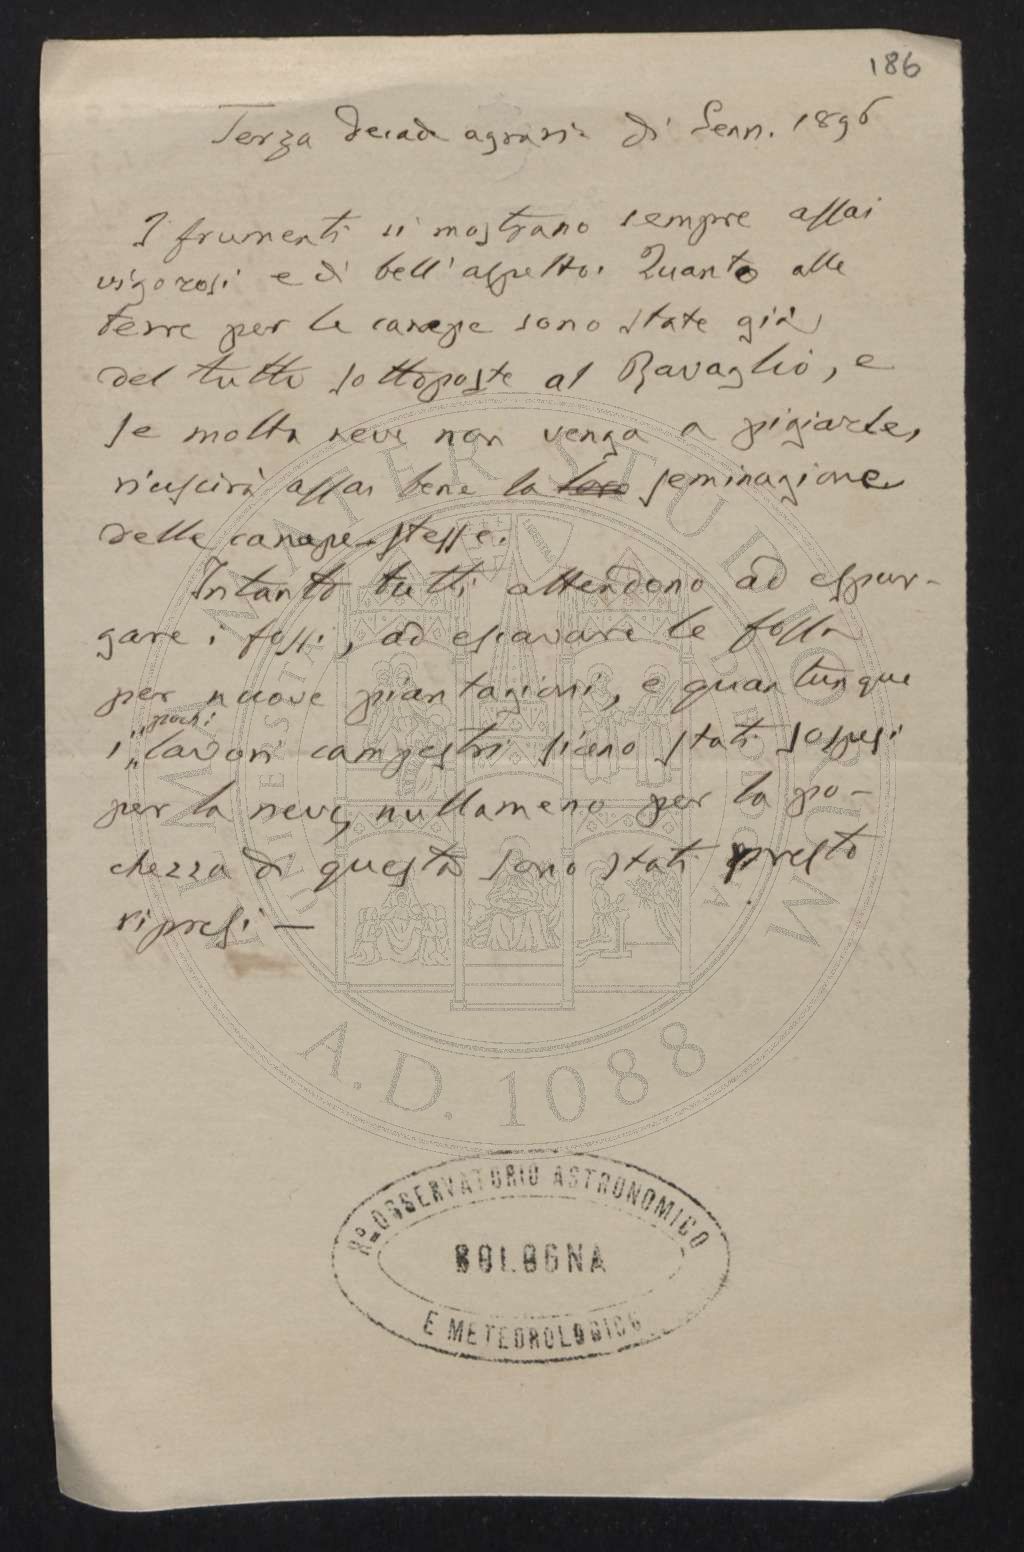 186
Terza decade agraria di Genn. 1896
I frumenti si mostrano sempre assai
vigorosi e di bell'aspetto. Quanto alle
terre per le canape sono state già
del tutto sottoposte al Ravaglio, e
se molta neve non venga a pigiarle,
riuscirà assai bene la loro seminagione
delle canape stesse.
Intanto tutti attendono ad espur-
gare i fossi, ad escavare le fosse
per nuove piantagioni, e quantunque
i pochi lavori campestri sieno stati sospesi
per la neve, nullameno per la po-
chezza di questa sono stati presto
ripresi —
ALMA MATER STUDIORUM
A.D. 1088
R.º OSSERVATORIO ASTRONOMICO
BOLOGNA
E METEOROLOGICO